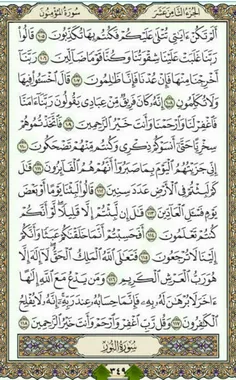 الجزء الثامن عشر سورة المؤمنون
ألم تكن ءايتي تتلى عليكم فكنتم بها تكذبون ١٠٥ قالوا
ربنا غلبت علينا شقوتنا وكنا قوما ضالين ١٠٦ ربنا
أخرجنا منها فإن عدنا فإنا ظلمون ١٠٧ قال اخسوا فيها
ولا تكلمون ١٠٨ إنه كان فريق من عبادي يقولون ربنا ءامنا
فاغفر لنا وارحمنا وأنت خير الرحمين ١٠٩ فاتخذتموهم
سخريا حتى أنسوكم ذكري وكنتم منهم تضحكون ١١٠
إني جزيتهم اليوم بما صبروا أنهم هم الفائزون ١١١ قل
كم لبثتم في الأرض عدد سنين ١١٢ قالوا لبثنا يوما أو بعض
يوم فسل العادين ١١٣ قل إن لبثتم إلا قليلا لو أنكم
كنتم تعلمون ١١٤ أفحسبتم أنما خلقنكم عبثا وأنكم
إلينا لا ترجعون ١١٥ فتعلى الله الملك الحق لا إله إلا
هو رب العرش الكريم ١١٦ ومن يدع مع الله إلها
ءاخر لا برهن له به فإنما حسابه عند ربه إنه لا يفلح
الكفرون ١١٧ وقل رب اغفر وارحم وأنت خير الرحمين ١١٨
سورة النور
٣٤٩